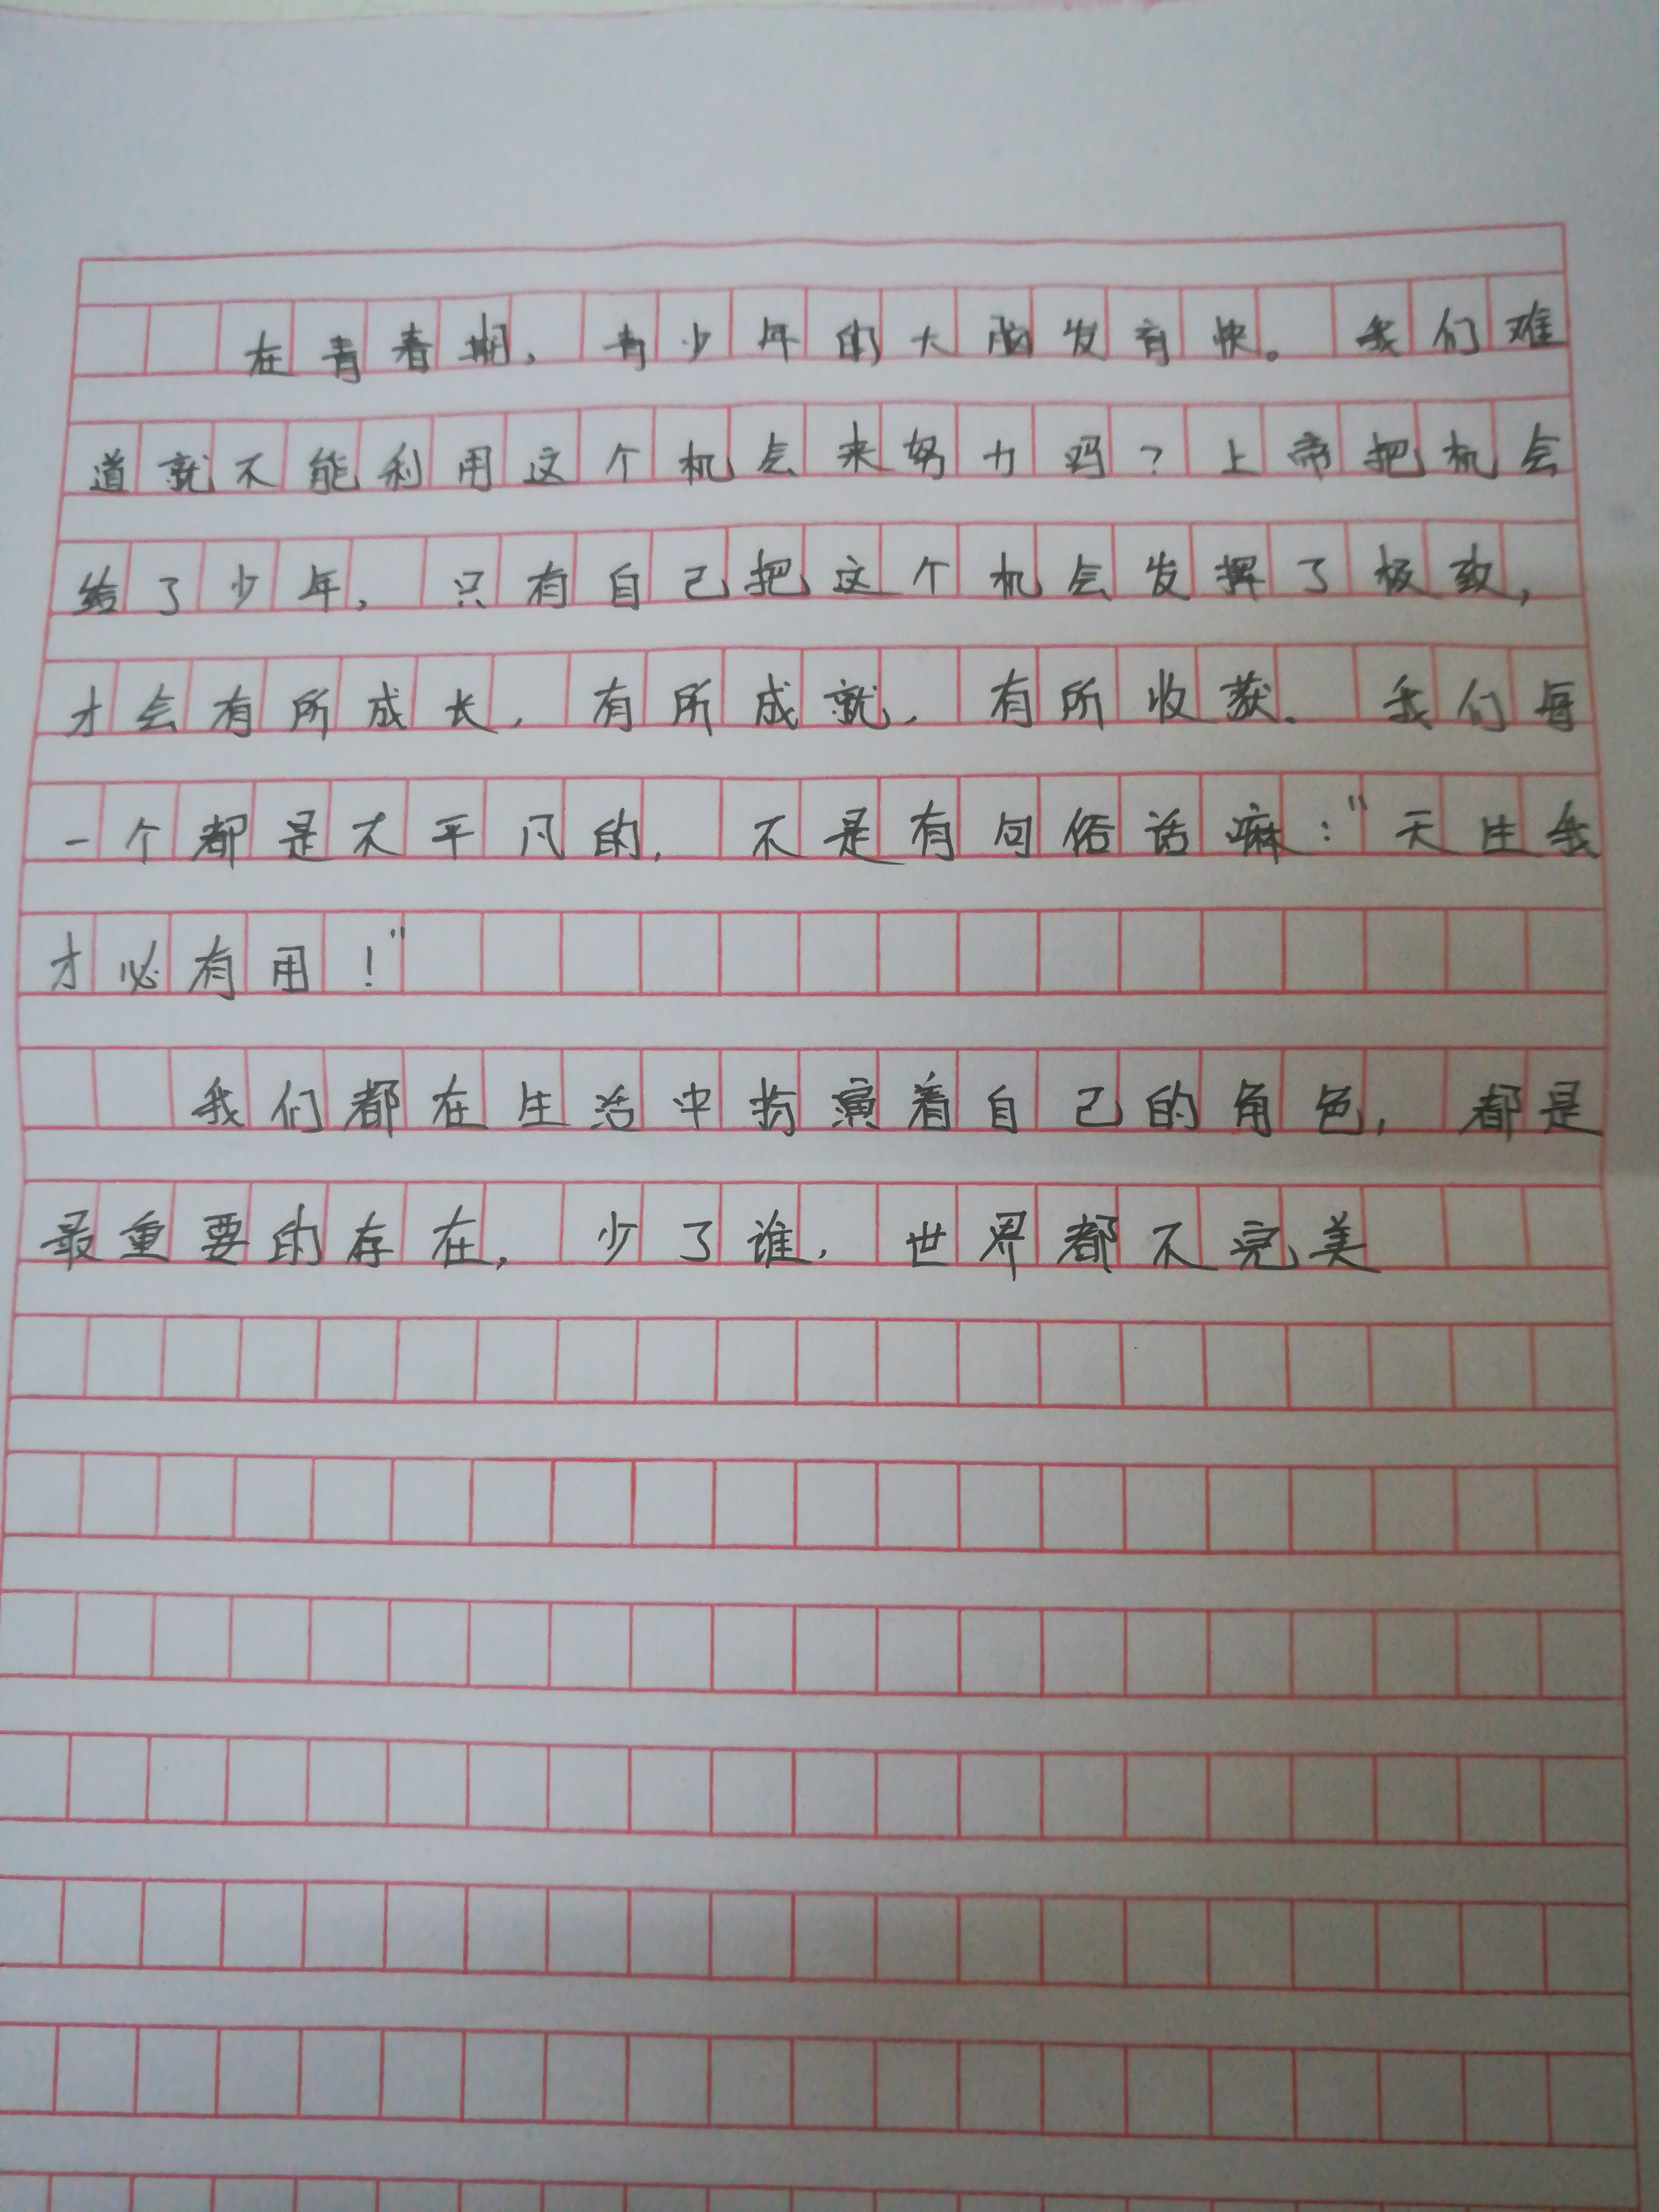 在青春期，青少年的大脑发育快。我们难
道就不能利用这个机会来努力吗？上帝把机会
给了少年，只有自己把这个机会发挥了极致，
才会有所成长，有所成就，有所收获。我们每
一个都是不平凡的，不是有句俗话嘛：“天生我
才必有用！”
我们都在生活中扮演着自己的角色，都是
最重要的存在，少了谁，世界都不完美